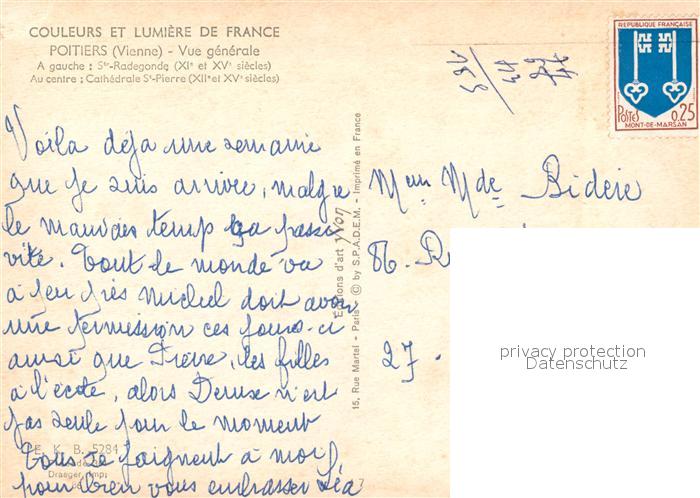 COULEURS ET LUMIÈRE DE FRANCE
POITIERS (Vienne) - Vue générale
A gauche : Ste-Radegonde (XIe et XVe siècles)
Au centre : Cathédrale St-Pierre (XIIe et XVe siècles)
Voila déja une semaine
que je suis arrivée, malgre
le mauvais temps ça passe
vite. Tout le monde va
à peu près Michel doit avoir
une permission ces jours-ci
ainsi que Pierre, les filles
à l'école, alors Denise n'est
pas seule pour le moment
Tous se joignent à moi
pour bien vous embrasser Léa
E. K. B. 5284
Draeger, Imp.
Editions d'art Yvon
15, Rue Martel - Paris © by S.P.A.D.E.M. - Imprimé en France
REPUBLIQUE FRANÇAISE
POSTES 0,25
MONT-DE-MARSAN
Mme Bidere
86. R
27.
privacy protection
Datenschutz